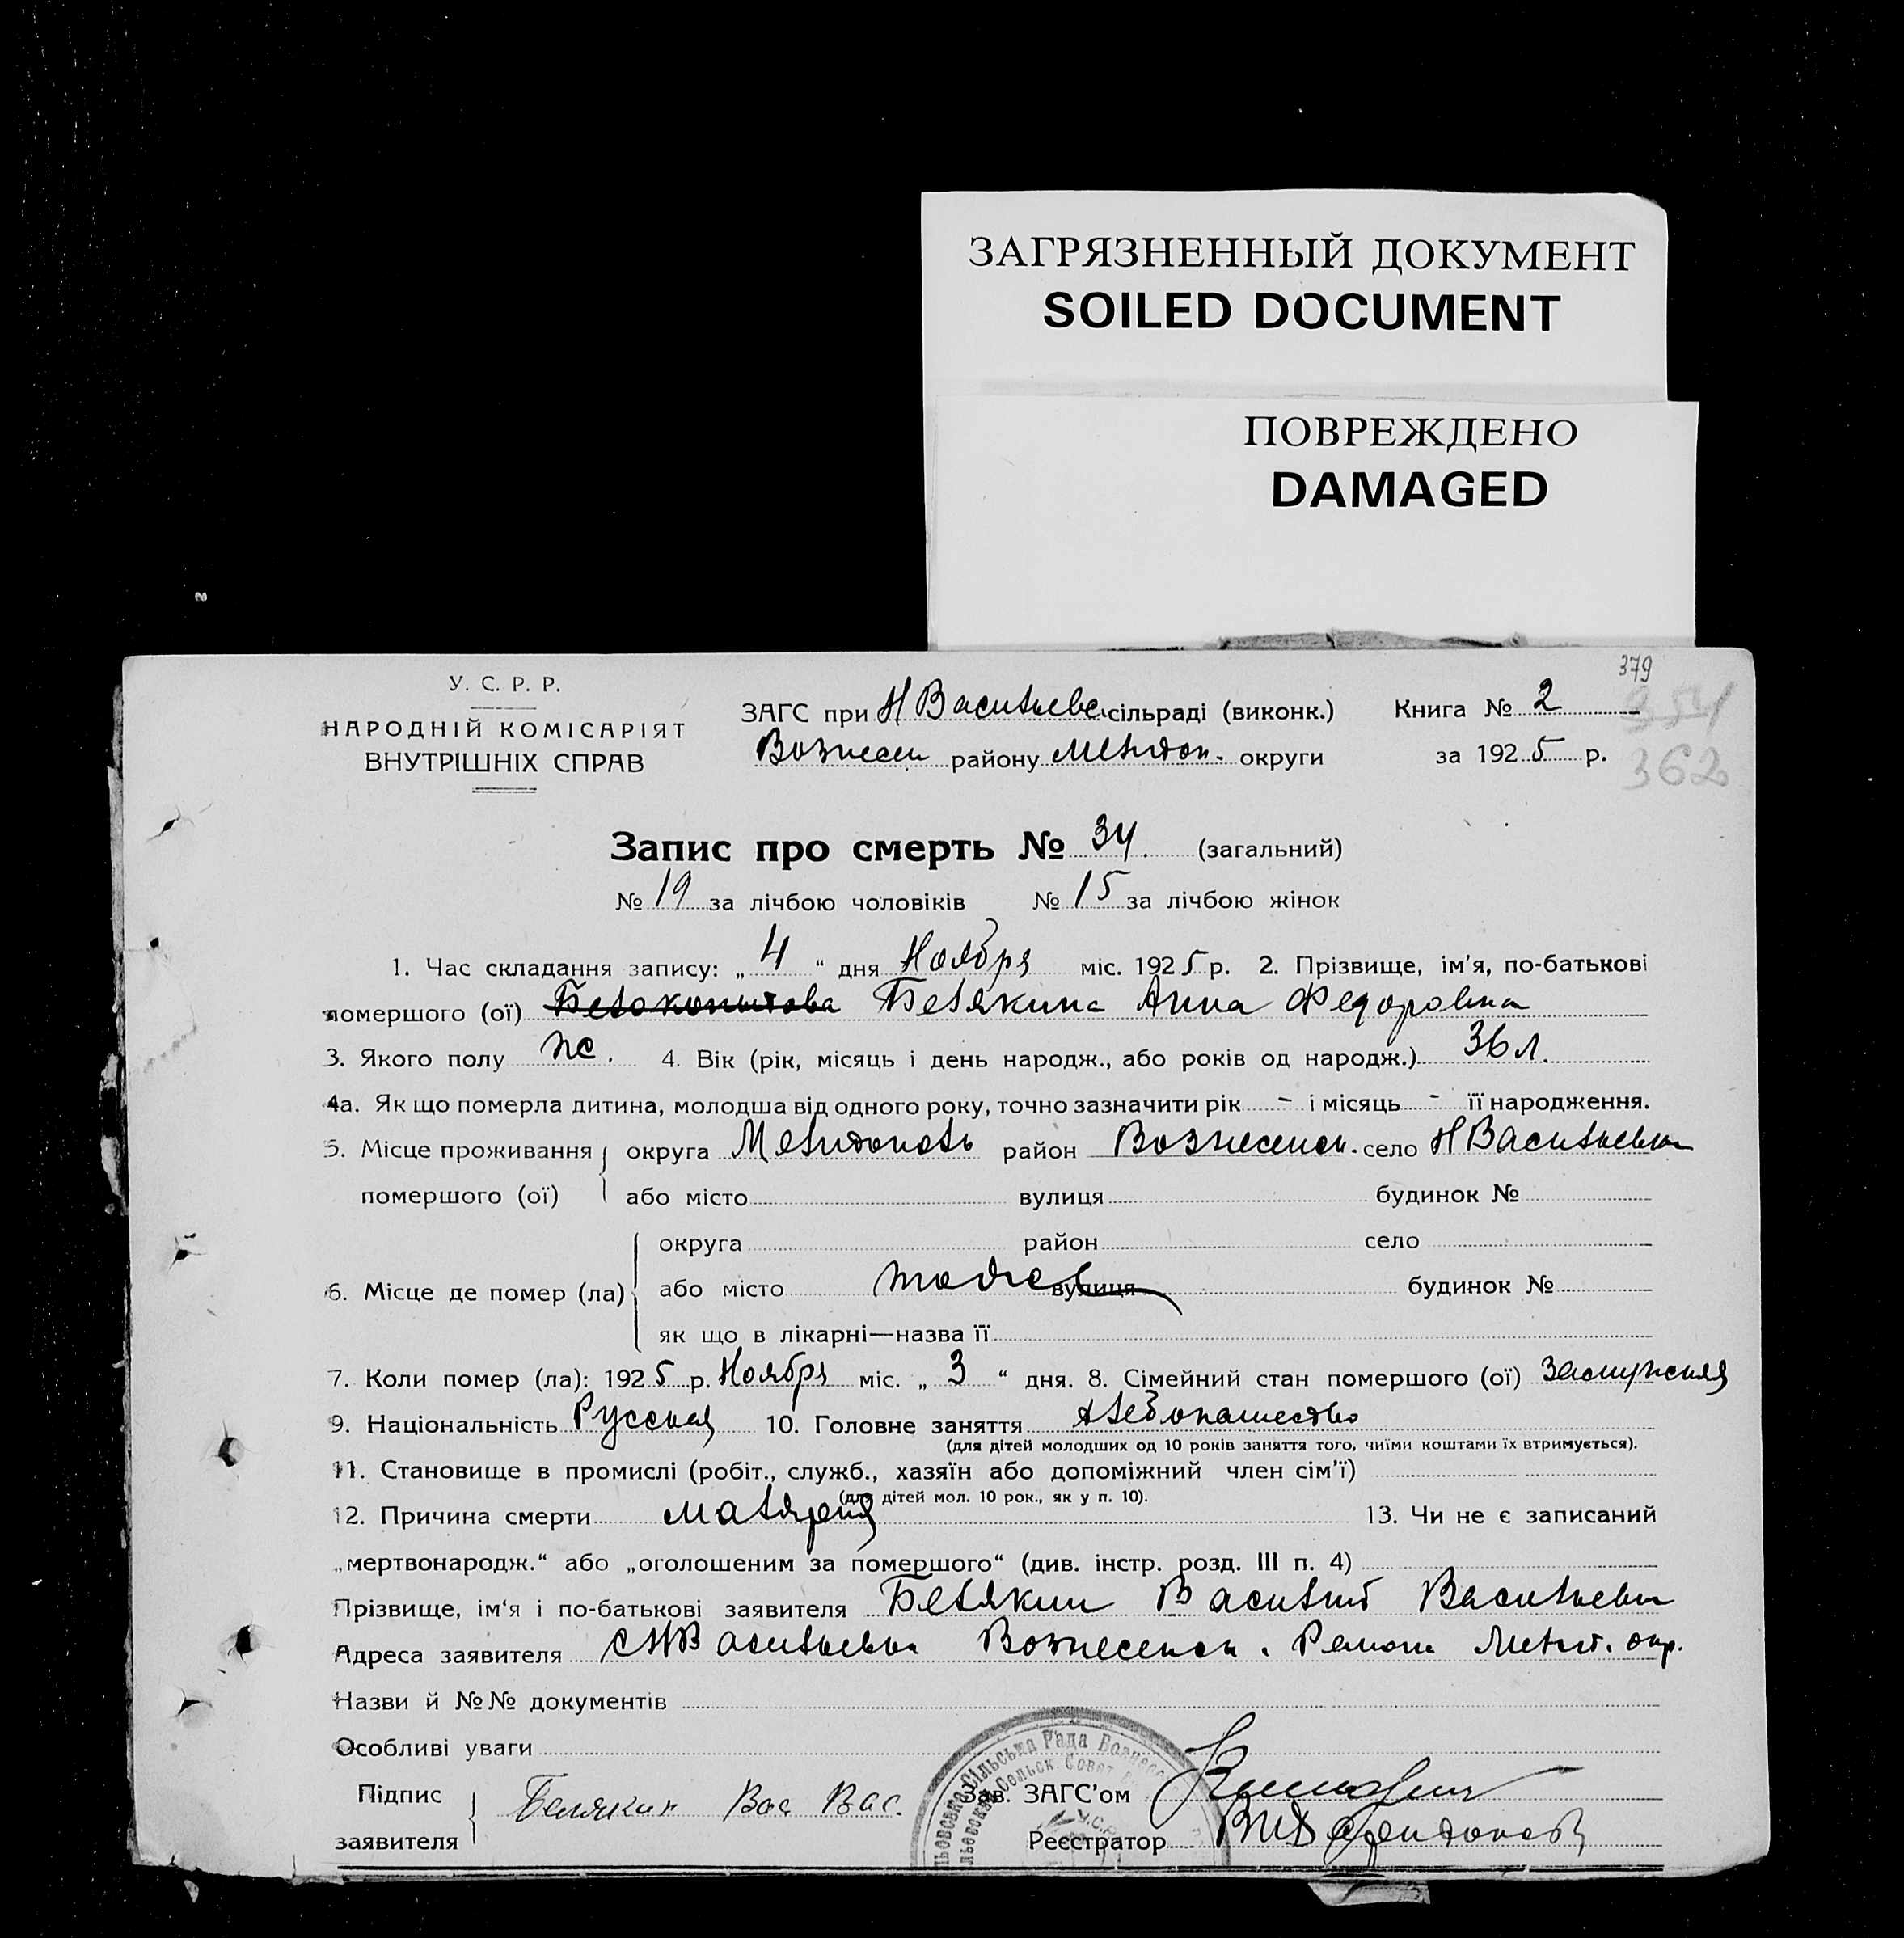 ЗАГРЯЗНЕННЫЙ ДОКУМЕНТ
SOILED DOCUMENT
ПОВРЕЖДЕНО
DAMAGED
379
354
362
У. С. Р. Р.
НАРОДНІЙ КОМІСАРІЯТ
ВНУТРІШНІХ СПРАВ
ЗАГС при Н Васильевс. сільраді (виконк.) Книга № 2
Вознесен району Мелитоп. округи за 1925 р.
Запис про смерть № 34. (загальний)
№ 19 за лічбою чоловіків № 15 за лічбою жінок
1. Час складання запису: „ 4 “ дня Ноября міс. 1925 р. 2. Прізвище, ім'я, по-батькові
помершого (ої) Белокопытова Белякина Анна Федоровна
3. Якого полу жс. 4. Вік (рік, місяць і день народж., або років од народж.) 36 л.
4а. Як що померла дитина, молодша від одного року, точно зазначити рік - і місяць - її народження.
5. Місце проживання округа Мелитополь район Вознесенск. село Н Васильевка
помершого (ої) або місто вулиця будинок №
округа район село
6. Місце де помер (ла) або місто тоже вулиця будинок №
як що в лікарні—назва її
7. Коли помер (ла): 1925 р. Ноября міс. „ 3 “ дня. 8. Сімейний стан помершого (ої) Замужняя
9. Національність Русская 10. Головне заняття хлебопашество
(для дітей молодших од 10 років заняття того, чиїми коштами їх втримується).
11. Становище в промислі (робіт., служб., хазяїн або допоміжний член сім'ї)
(для дітей мол. 10 рок., як у п. 10).
12. Причина смерти малярия 13. Чи не є записаний
„мертвонародж.“ або „оголошеним за помершого“ (див. інстр. розд. III п. 4)
Прізвище, ім'я і по-батькові заявителя Белякин Василий Васильевич
Адреса заявителя С Н Васильевка Вознесенск. Района Мелит. окр.
Назви й №№ документів
Особливі уваги
Підпис заявителя Белякин Вас Вас.
Зав. ЗАГС'ом
Реєстратор
Сільська Рада Вознесе
Сельск. Совет
У.С.Р